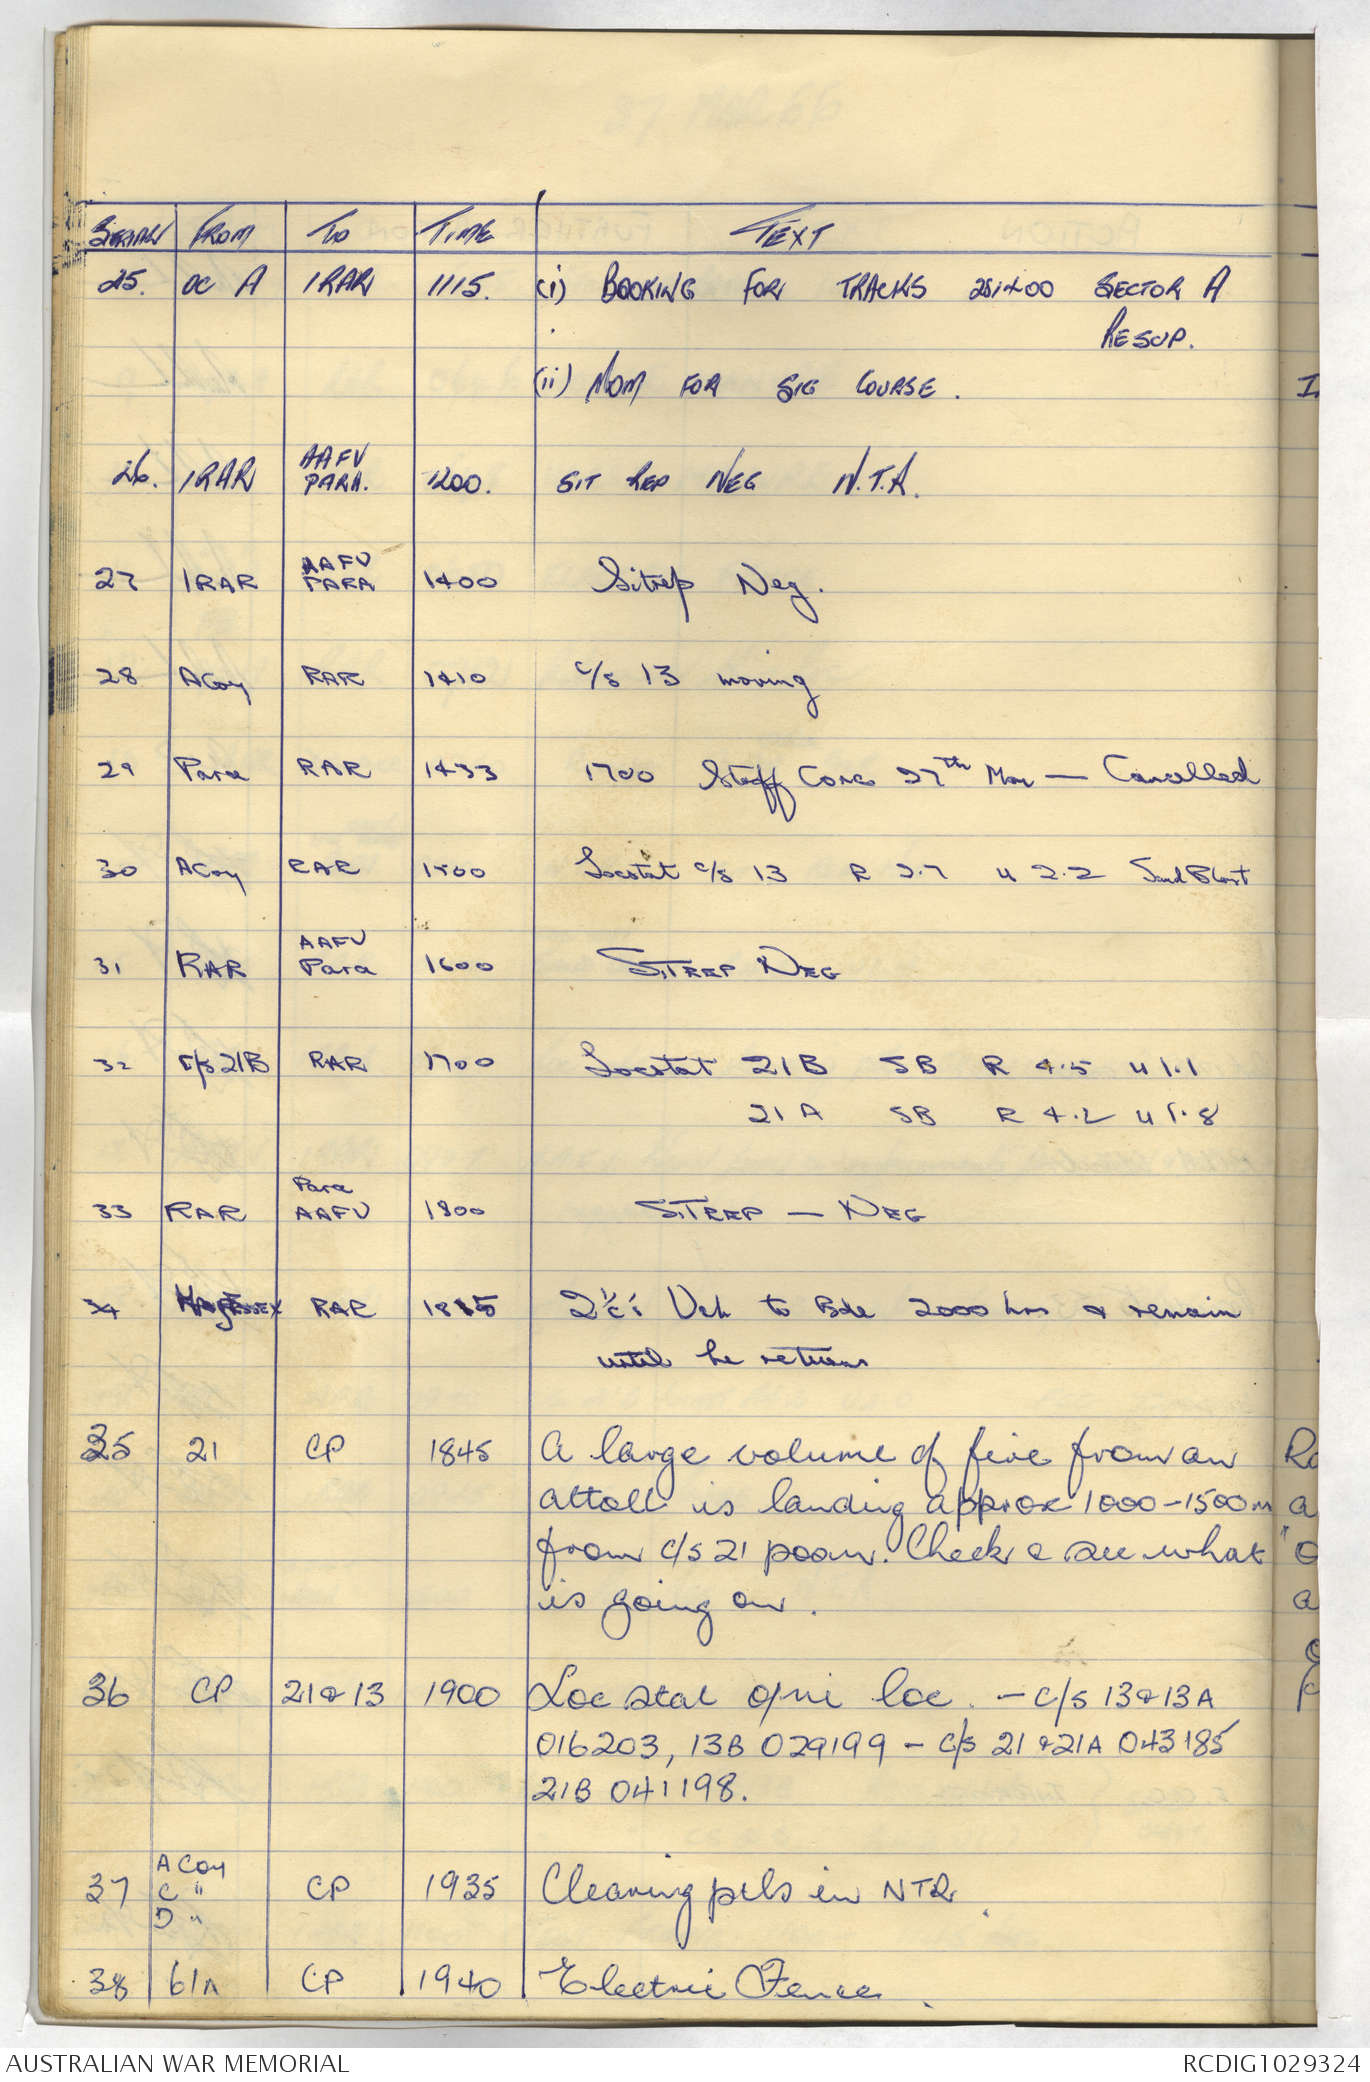 SERIAL FROM TO TIME TEXT
25. OC A 1RAR 1115. (i) BOOKING FOR TRACKS 281400 SECTOR A
RESUP.
(ii) NOM FOR SIG COURSE.
26. 1RAR AAFV
PARA. 1200. SIT REP NEG N.T.R.
27 1RAR AAFV
PARA 1400 Sitrep Neg.
28 A Coy RAR 1410 c/s 13 moving
29 Para RAR 1433 1700 Staff Conc 27th Mar — Cancelled
30 A Coy RAR 1500 Locstat c/s 13 R 2.7 U 2.2 Sand Blast
31 RAR AAFV
Para 1600 SITREP NEG
32 c/s 21B RAR 1700 Locstat 21B SB R 4.5 U 1.1
21A SB R 4.2 U 1.8
33 RAR Para
AAFV 1800 SITREP — NEG
34 RAR 1815 2 i/c's Veh to Bde 2000 hrs & remain
until he returns
35 21 CP 1845 A large volume of fire from an
attoll is landing approx 1000-1500m
from c/s 21 posn. Check & see what
is going on.
36 CP 21 & 13 1900 Loc stat o/ni loc. - C/S 13 & 13A
016203, 13B 029199 - c/s 21 & 21A 043185
21B 041198.
37 A Coy
C "
D " CP 1935 Clearing ptls in NTR.
38 61A CP 1940 Electric Fence.
AUSTRALIAN WAR MEMORIAL RCDIG1029324